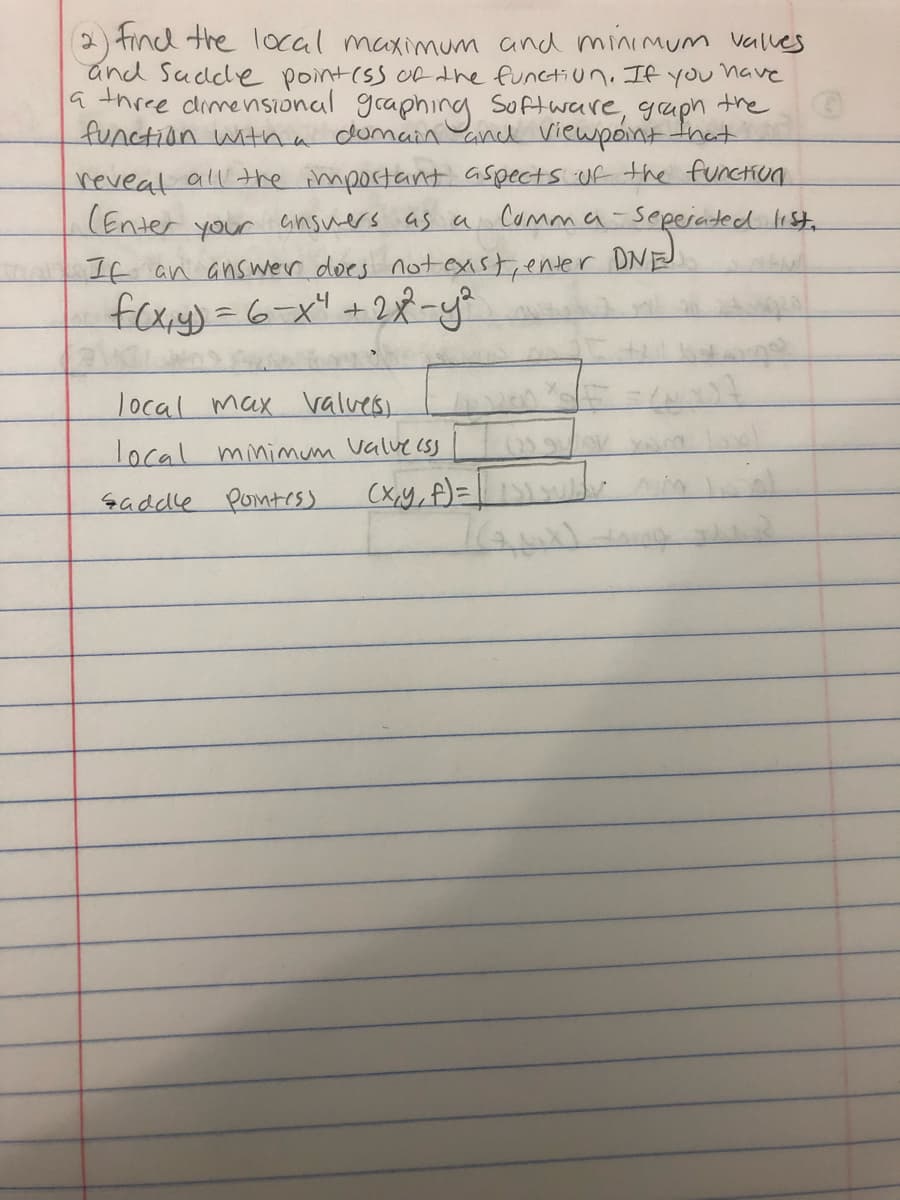 2) find the local maximum and minimum values
and Saddle point(s) of the function. If you have
a three dimensional graphing Software, graph the
function with a domain and viewpoint that
reveal all the important aspects of the function
(Enter your answers as a Comma-Seperated list.
If an answer does not exist, enter DNE)
f(x,y) = 6-x⁴ + 2x²-y²
local max value(s)
local minimum value(s)
saddle point(s) (x,y,f)=